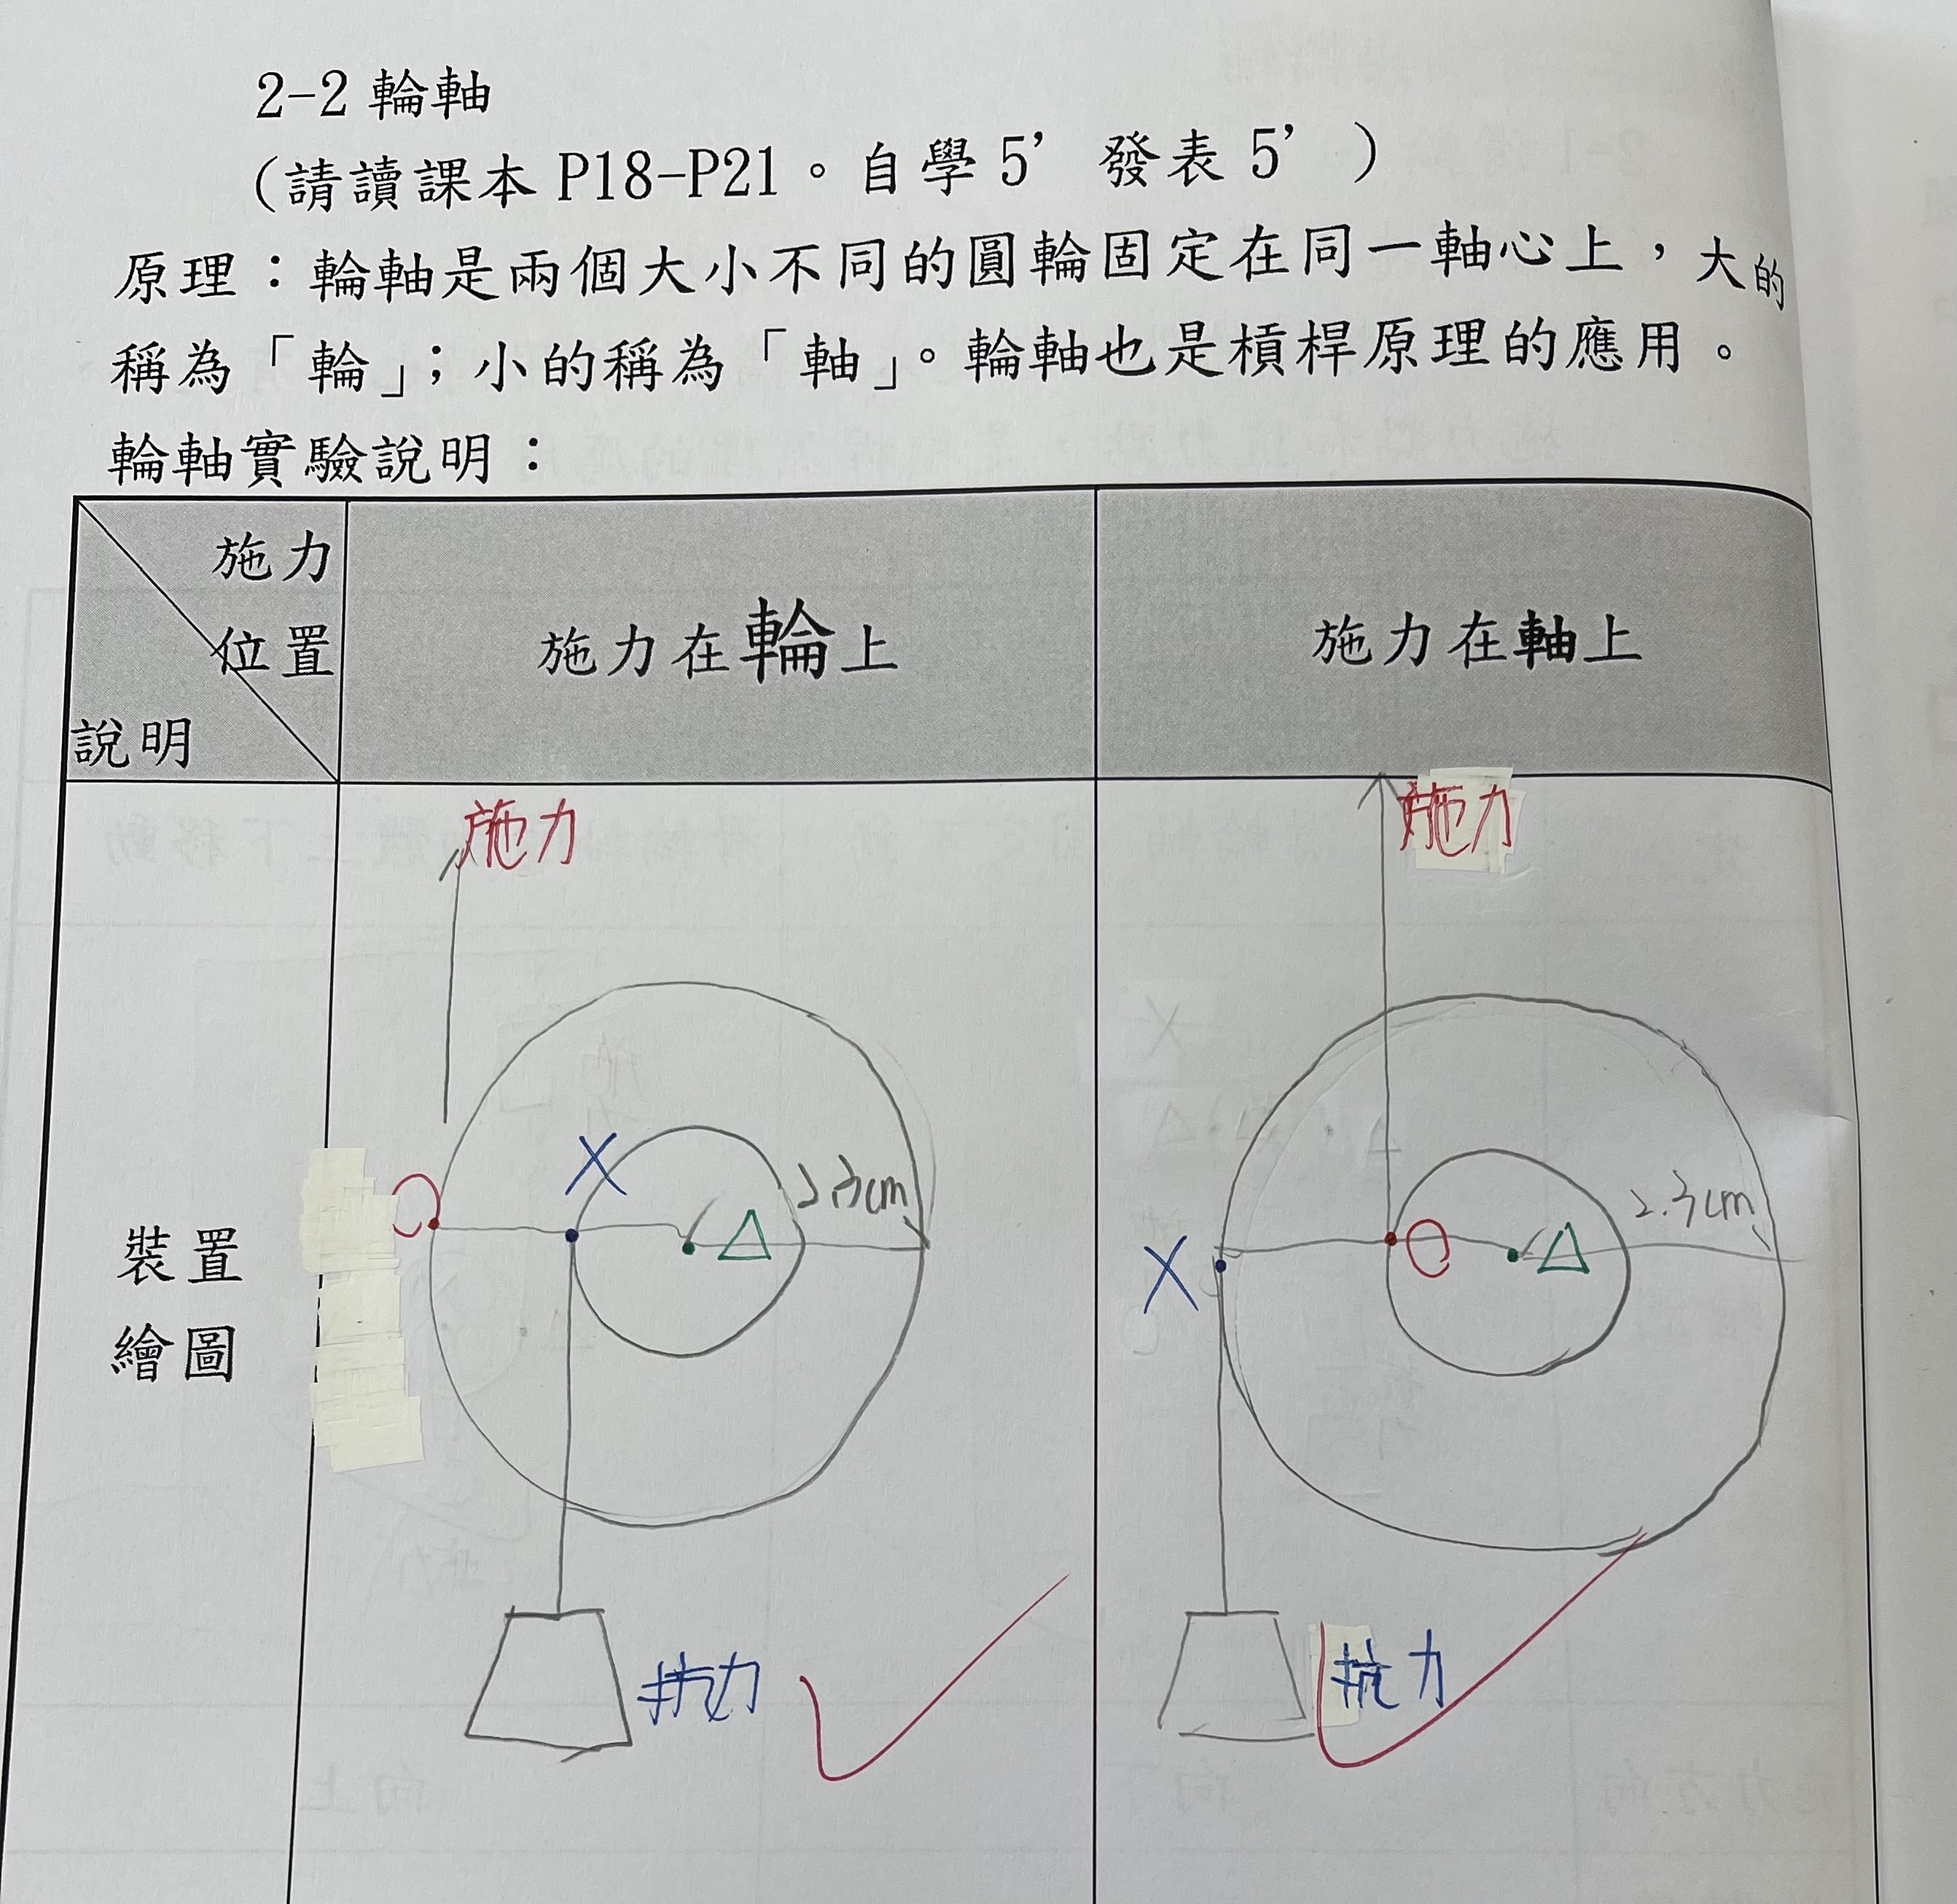 2-2 輪軸
(請讀課本 P18-P21。自學 5’ 發表 5’ )
原理：輪軸是兩個大小不同的圓輪固定在同一軸心上，大的
稱為「輪」；小的稱為「軸」。輪軸也是槓桿原理的應用。
輪軸實驗說明：
施力
位置
說明
施力在輪上
施力在軸上
裝置
繪圖
施力
O
X
△
2.3cm
抗力
施力
X
O
△
2.3cm
抗力